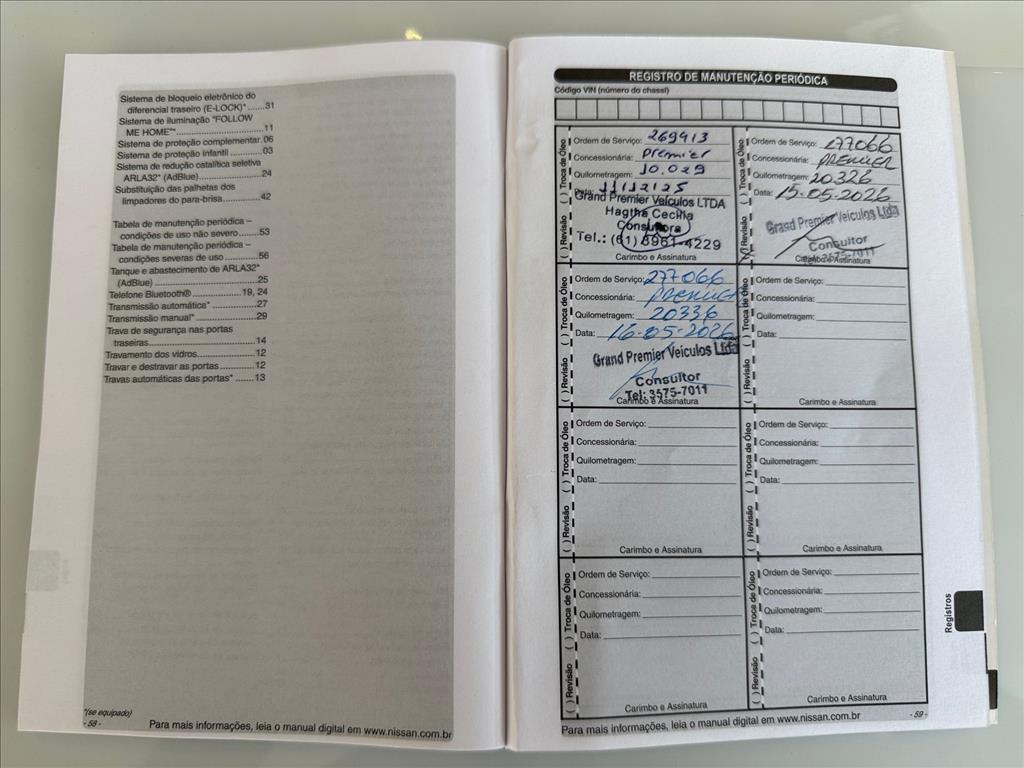 Sistema de bloqueio eletrônico do
diferencial traseiro (E-LOCK)* .......31
Sistema de iluminação "FOLLOW
ME HOME"* ..............................11
Sistema de proteção complementar.06
Sistema de proteção infantil ............03
Sistema de redução catalítica seletiva
ARLA32* (AdBlue).......................24
Substituição das palhetas dos
limpadores do para-brisa..............42
Tabela de manutenção periódica –
condições de uso não severo.......53
Tabela de manutenção periódica –
condições severas de uso ............56
Tanque e abastecimento de ARLA32*
(AdBlue) ......................................25
Telefone Bluetooth® ..................19, 24
Transmissão automática* ................27
Transmissão manual* .....................29
Trava de segurança nas portas
traseiras.......................................14
Travamento dos vidros....................12
Travar e destravar as portas ...........12
Travas automáticas das portas* ......13
*(se equipado)
- 58 -
Para mais informações, leia o manual digital em www.nissan.com.br
REGISTRO DE MANUTENÇÃO PERIÓDICA
Código VIN (número do chassi)
( ) Revisão ( ) Troca de Óleo
Ordem de Serviço: 269413
Concessionária: Premier
Quilometragem: 10.029
Data: 11/12/25
Grand Premier Veículos LTDA
Hagtha Cecilia
Consultora
Tel.: (61) 8961-4229
Carimbo e Assinatura
Revisão ( ) Troca de Óleo
Ordem de Serviço: 277066
Concessionária: PREMIER
Quilometragem: 20326
Data: 15-05-2026
Grand Premier Veículos Ltda
Consultor
3575-7011
Carimbo e Assinatura
( ) Revisão ( ) Troca de Óleo
Ordem de Serviço: 277066
Concessionária: PREMIER
Quilometragem: 20336
Data: 16-05-2026
Grand Premier Veículos Ltda
Consultor
Tel: 3575-7011
Carimbo e Assinatura
( ) Revisão ( ) Troca de Óleo
Ordem de Serviço:
Concessionária:
Quilometragem:
Data:
Carimbo e Assinatura
( ) Revisão ( ) Troca de Óleo
Ordem de Serviço:
Concessionária:
Quilometragem:
Data:
Carimbo e Assinatura
( ) Revisão ( ) Troca de Óleo
Ordem de Serviço:
Concessionária:
Quilometragem:
Data:
Carimbo e Assinatura
( ) Revisão ( ) Troca de Óleo
Ordem de Serviço:
Concessionária:
Quilometragem:
Data:
Carimbo e Assinatura
( ) Revisão ( ) Troca de Óleo
Ordem de Serviço:
Concessionária:
Quilometragem:
Data:
Carimbo e Assinatura
Registros
Para mais informações, leia o manual digital em www.nissan.com.br
- 59 -